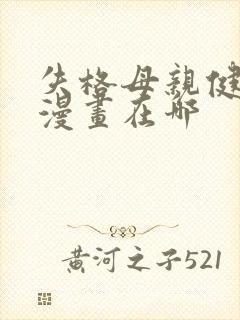 失格母親健
漫畫在哪
黃河之子521